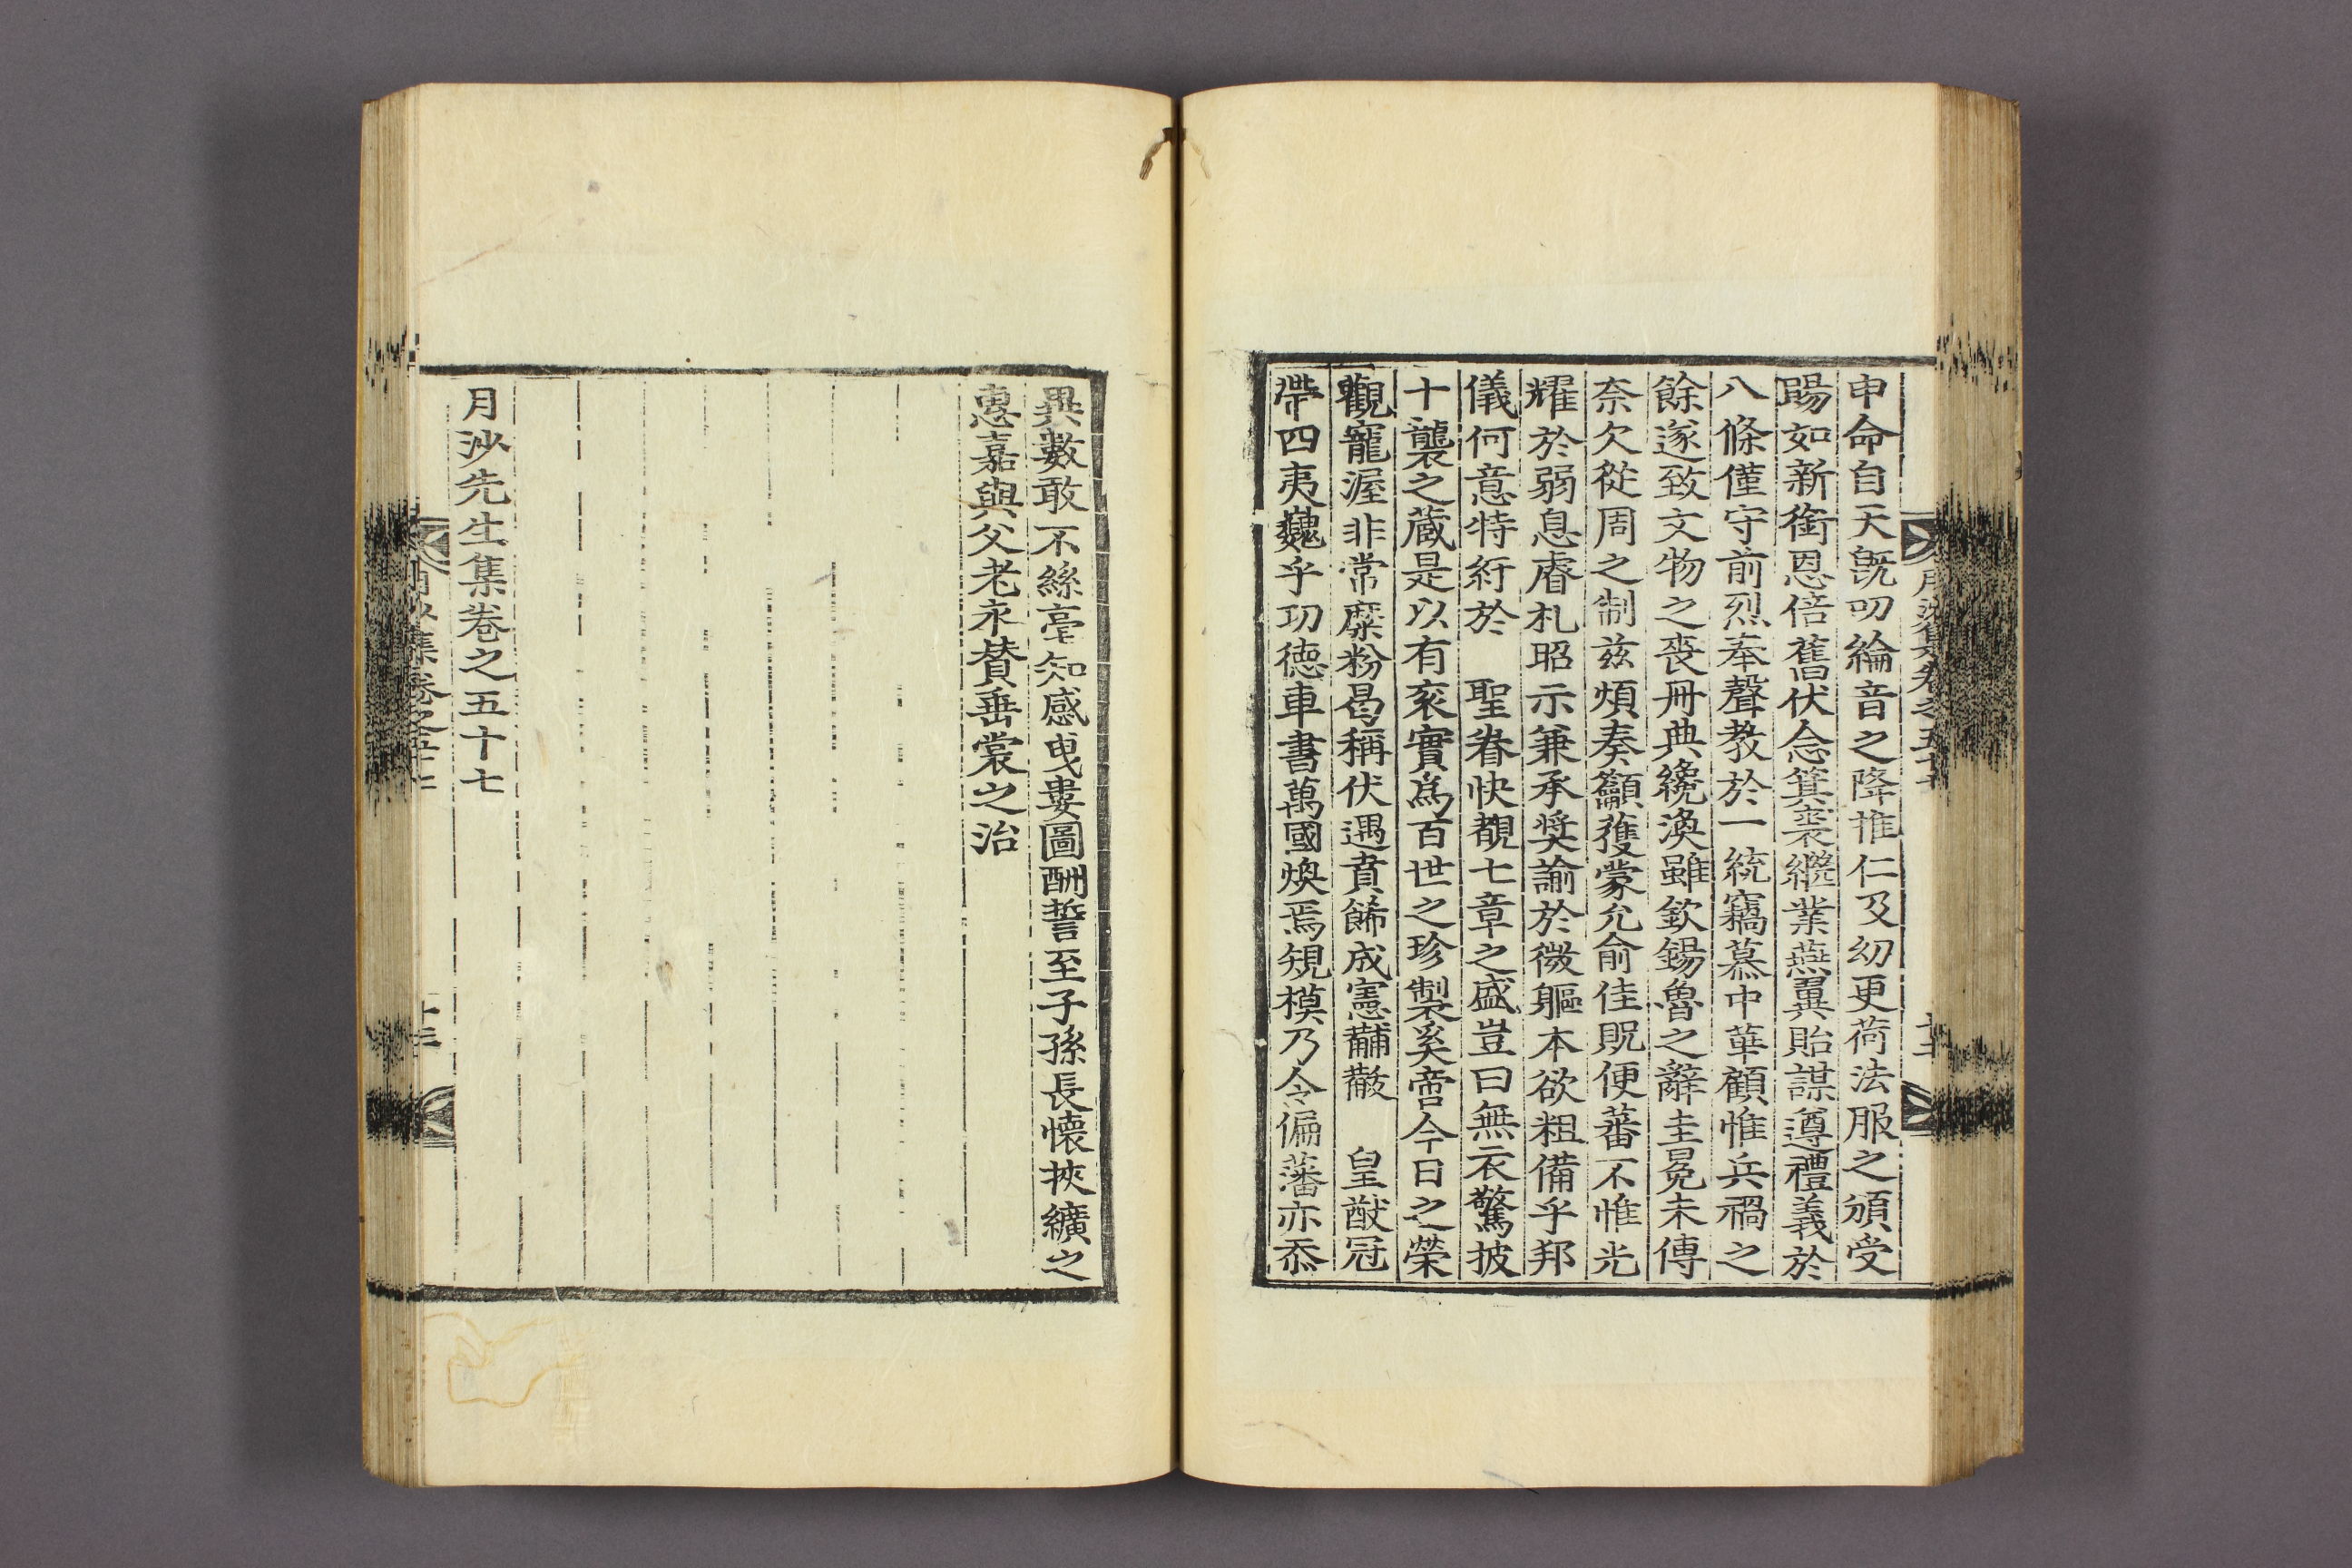 申命自天旣叨綸音之降推仁及幼更荷法服之頒受
賜如新銜恩倍舊伏念箕裘繼業燕翼貽謀遵禮義於
八條僅守前烈奉聲敎於一統竊慕中華顧惟兵禍之
餘遂致文物之喪冊典纔渙雖欽錫魯之辭圭冕未傳
奈欠從周之制玆煩奏籲獲蒙允兪佳貺便蕃不惟光
耀於弱息睿札昭示兼承奬諭於微軀本欲粗備乎邦
儀何意特紆於 聖眷快覩七章之盛豈曰無衣驚披
十襲之藏是以有衮實爲百世之珍製奚啻今日之榮
觀寵渥非常糜粉曷稱伏遇賁飾成憲黼黻 皇猷冠
帶四夷巍乎功德車書萬國煥焉䂓模乃令偏藩亦忝
月沙集卷之五十七
十二
異數敢不絲毫知感曳婁圖酬誓至子孫長懷挾纊之
惠嘉與父老永賛垂裳之治
月沙先生集卷之五十七
月沙集卷之五十七
十三